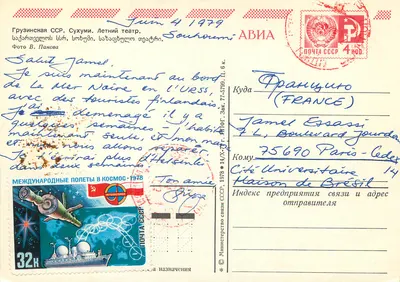 Juin 4 1979
Soukoumi
Грузинская ССР. Сухуми. Летний театр.
საქართველოს სსრ, სოხუმი, საზაფხულო თეატრი.
Фото В. Панова
АВИА
ПОЧТА СССР
4 коп
Salut Jamel.
Je suis maintenant au bord
de la Mer Noire en l'URSS,
avec des touristes finlandais.
J'ai déménagé il y a
quelques semaines, j'habite
maintenant seule et mon
et nous allons
plus à Helsinki
dans deux semaines
Ton amie,
МЕЖДУНАРОДНЫЕ ПОЛЕТЫ В КОСМОС·1978
ПОЧТА СССР
32к
Куда
Францию
(FRANCE)
Jamel Essassi
7 L, Boulevard Jourdan
Кому
75690 Paris-Cedex
14
Cité Universitaire
Maison de Brésil
Индекс предприятия связи и адрес
отправителя
© Министерство связи СССР. 1978